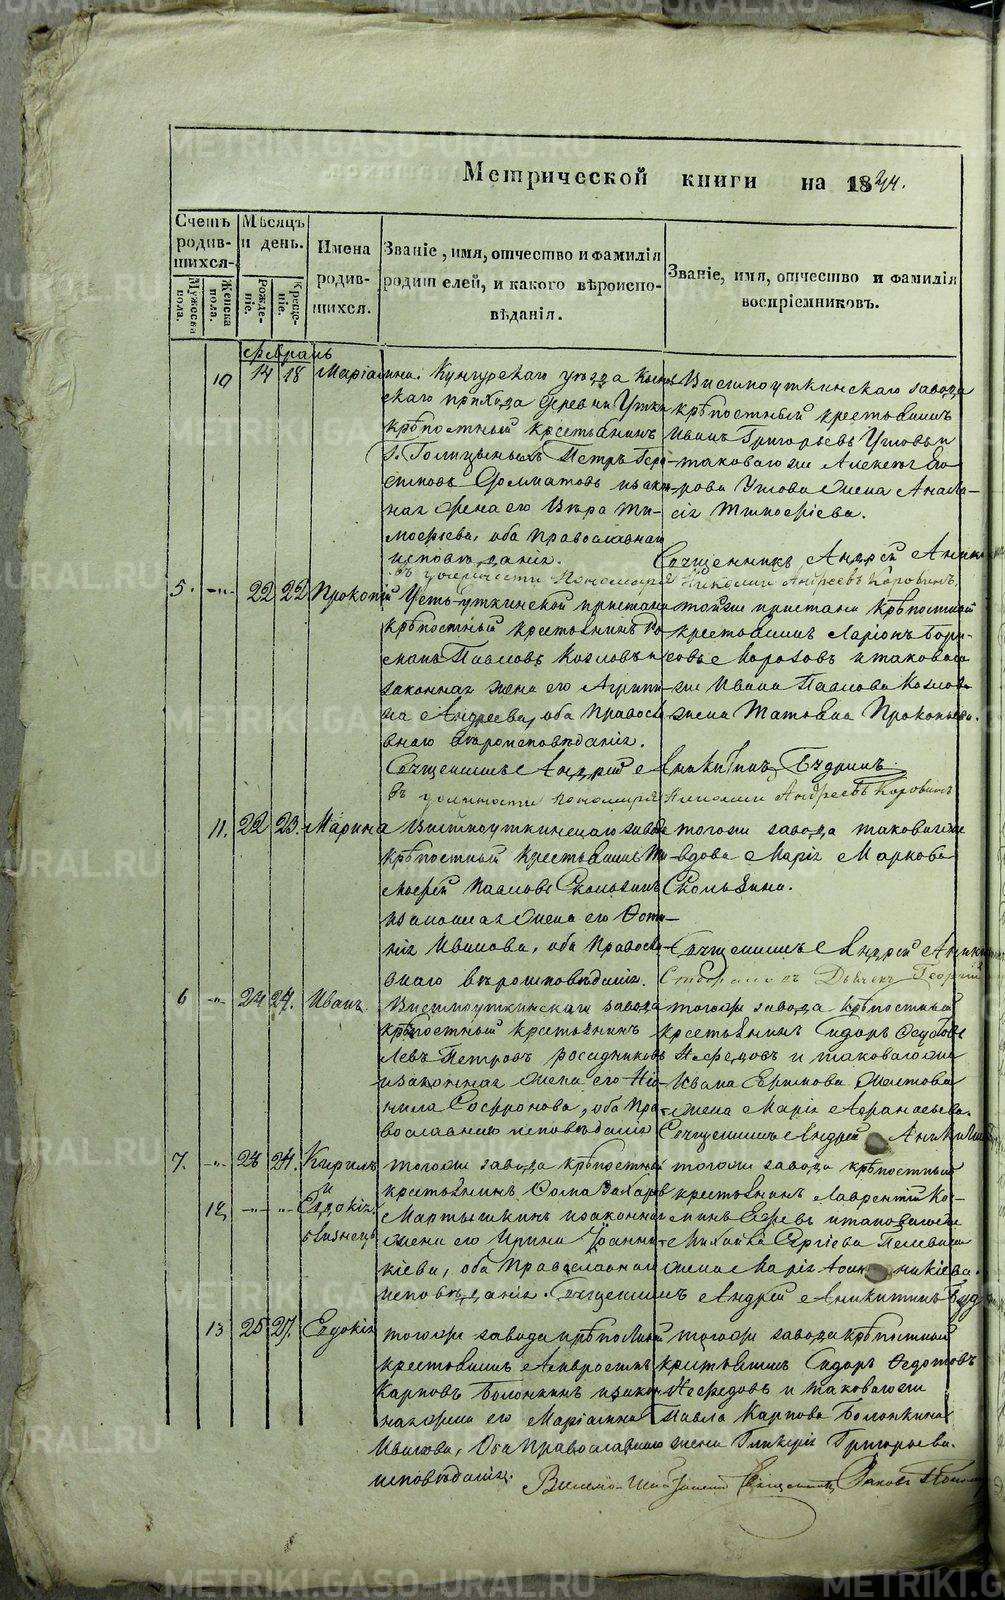 Метрической книги на 1844.
Счетъ родив-шихся.
Мужеска пола.
Женска пола.
Мѣсяцъ и день.
Рожде-ніе.
Креще-ніе.
Имена родив-шихся.
Званіе, имя, отчество и фамилія
родителей, и какого вѣроиспо-
вѣданія.
Званіе, имя, отчество и фамилія
воспріемниковъ.
Февраль
10 14 18 Маріамна.
Кунгурскаго уѣзда
скаго прихода деревни Утки
крѣпостный крестьянинъ
г. Голицыныхъ Петръ
законная жена его Вѣра Ти-
моѳеева, оба Православнаго
исповѣданія.
Висимоуткинскаго завода
крѣпостный крестьянинъ
Иванъ Григорьевъ Угловъ и
таковаго же Алексѣя
Углова жена Анаста-
сія Тимоѳеева.
Священникъ Андрей
въ должности Пономаря Николай Андреевъ Коровинъ.
5. 22 22 Прокопій
Усть-уткинской пристани
крѣпостный крестьянинъ Ро-
манъ Павловъ Козловъ и
законная жена его Агрипи-
на Андреева, оба Правосла-
внаго вѣроисповѣданія.
той же пристани крѣпостный
крестьянинъ Ларіонъ Бори-
совъ Морозовъ и таковаго
же Ивана Павлова Козлова
жена Татьяна Прокопьева.
Священникъ Андрей Аникитинъ Будринъ.
въ должности пономаря Николай Андреевъ Коровинъ
11. 22 23. Марина
Висимоуткинскаго завода
крѣпостный крестьянинъ Ти-
моѳей Павловъ Скользинъ
и законная жена его Ѳети-
нія Иванова, оба Правосла-
внаго вѣроисповѣданія.
того же завода таковаго же
вдова Марія Маркова
Скользина.
Священникъ Андрей
Дьячекъ Георгій
6 24 24. Иванъ.
Висимоуткинскаго завода
крѣпостный крестьянинъ
Левъ Петровъ
и законная жена его Не-
нила Софронова, оба Пра-
вославнаго исповѣданія
того же завода крѣпостный
крестьянинъ Сидоръ Ѳедотовъ
Неѳедовъ и таковаго же
Ивана Ефимова Желтова
жена Марія Аѳанасьева.
Священникъ Андрей Аникитинъ
7. 23 24. Кирилъ
и
12 Евдокія
близнецы
того же завода крѣпостный
крестьянинъ Ѳома Захаровъ
Мартышкинъ и законная
жена его Ирина Іоанни-
кіева, оба Православнаго
исповѣданія.
того же завода крѣпостный
крестьянинъ Лаврентій Ко-
и таковаго же
Михаила Сергіева
жена Марія
Священникъ Андрей Аникитинъ
13 25 27. Евдокія
того же завода крѣпостный
крестьянинъ
Карповъ Болонкинъ и закон-
ная жена его Маріамна
Иванова, Оба Православнаго
исповѣданія.
того же завода крѣпостный
крестьянинъ Сидоръ Ѳедотовъ
Неѳедовъ и таковаго же
Павла Карпова Болонкина
жена Гликерія Григорьева.
METRIKI.GASO-URAL.RU